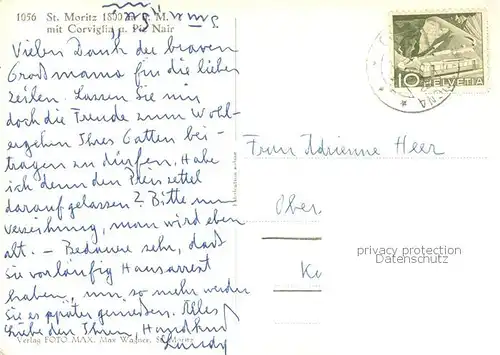 1056 St. Moritz 1800 m ü. M.
mit Corviglia u. Piz Nair
Vielen Dank der braven
Grossmama für die lieben
Zeilen. Lassen Sie mir
doch die Freude zum Wohl-
ergehen Ihres Gatten bei-
tragen zu dürfen. Habe
ich denn den Preiszettel
darauf gelassen? Bitte um
Verzeihung, man wird eben
alt. — Bedaure sehr, dass
sie vorläufig Hausarrest
haben, um so mehr werden
Sie es später geniessen. Alles
Liebe den Ihren, Handkuss
Verlag FOTO MAX, Max Wagner, St. Moritz
10 HELVETIA
Frau Adrienne Heer
Ober
privacy protection
Datenschutz